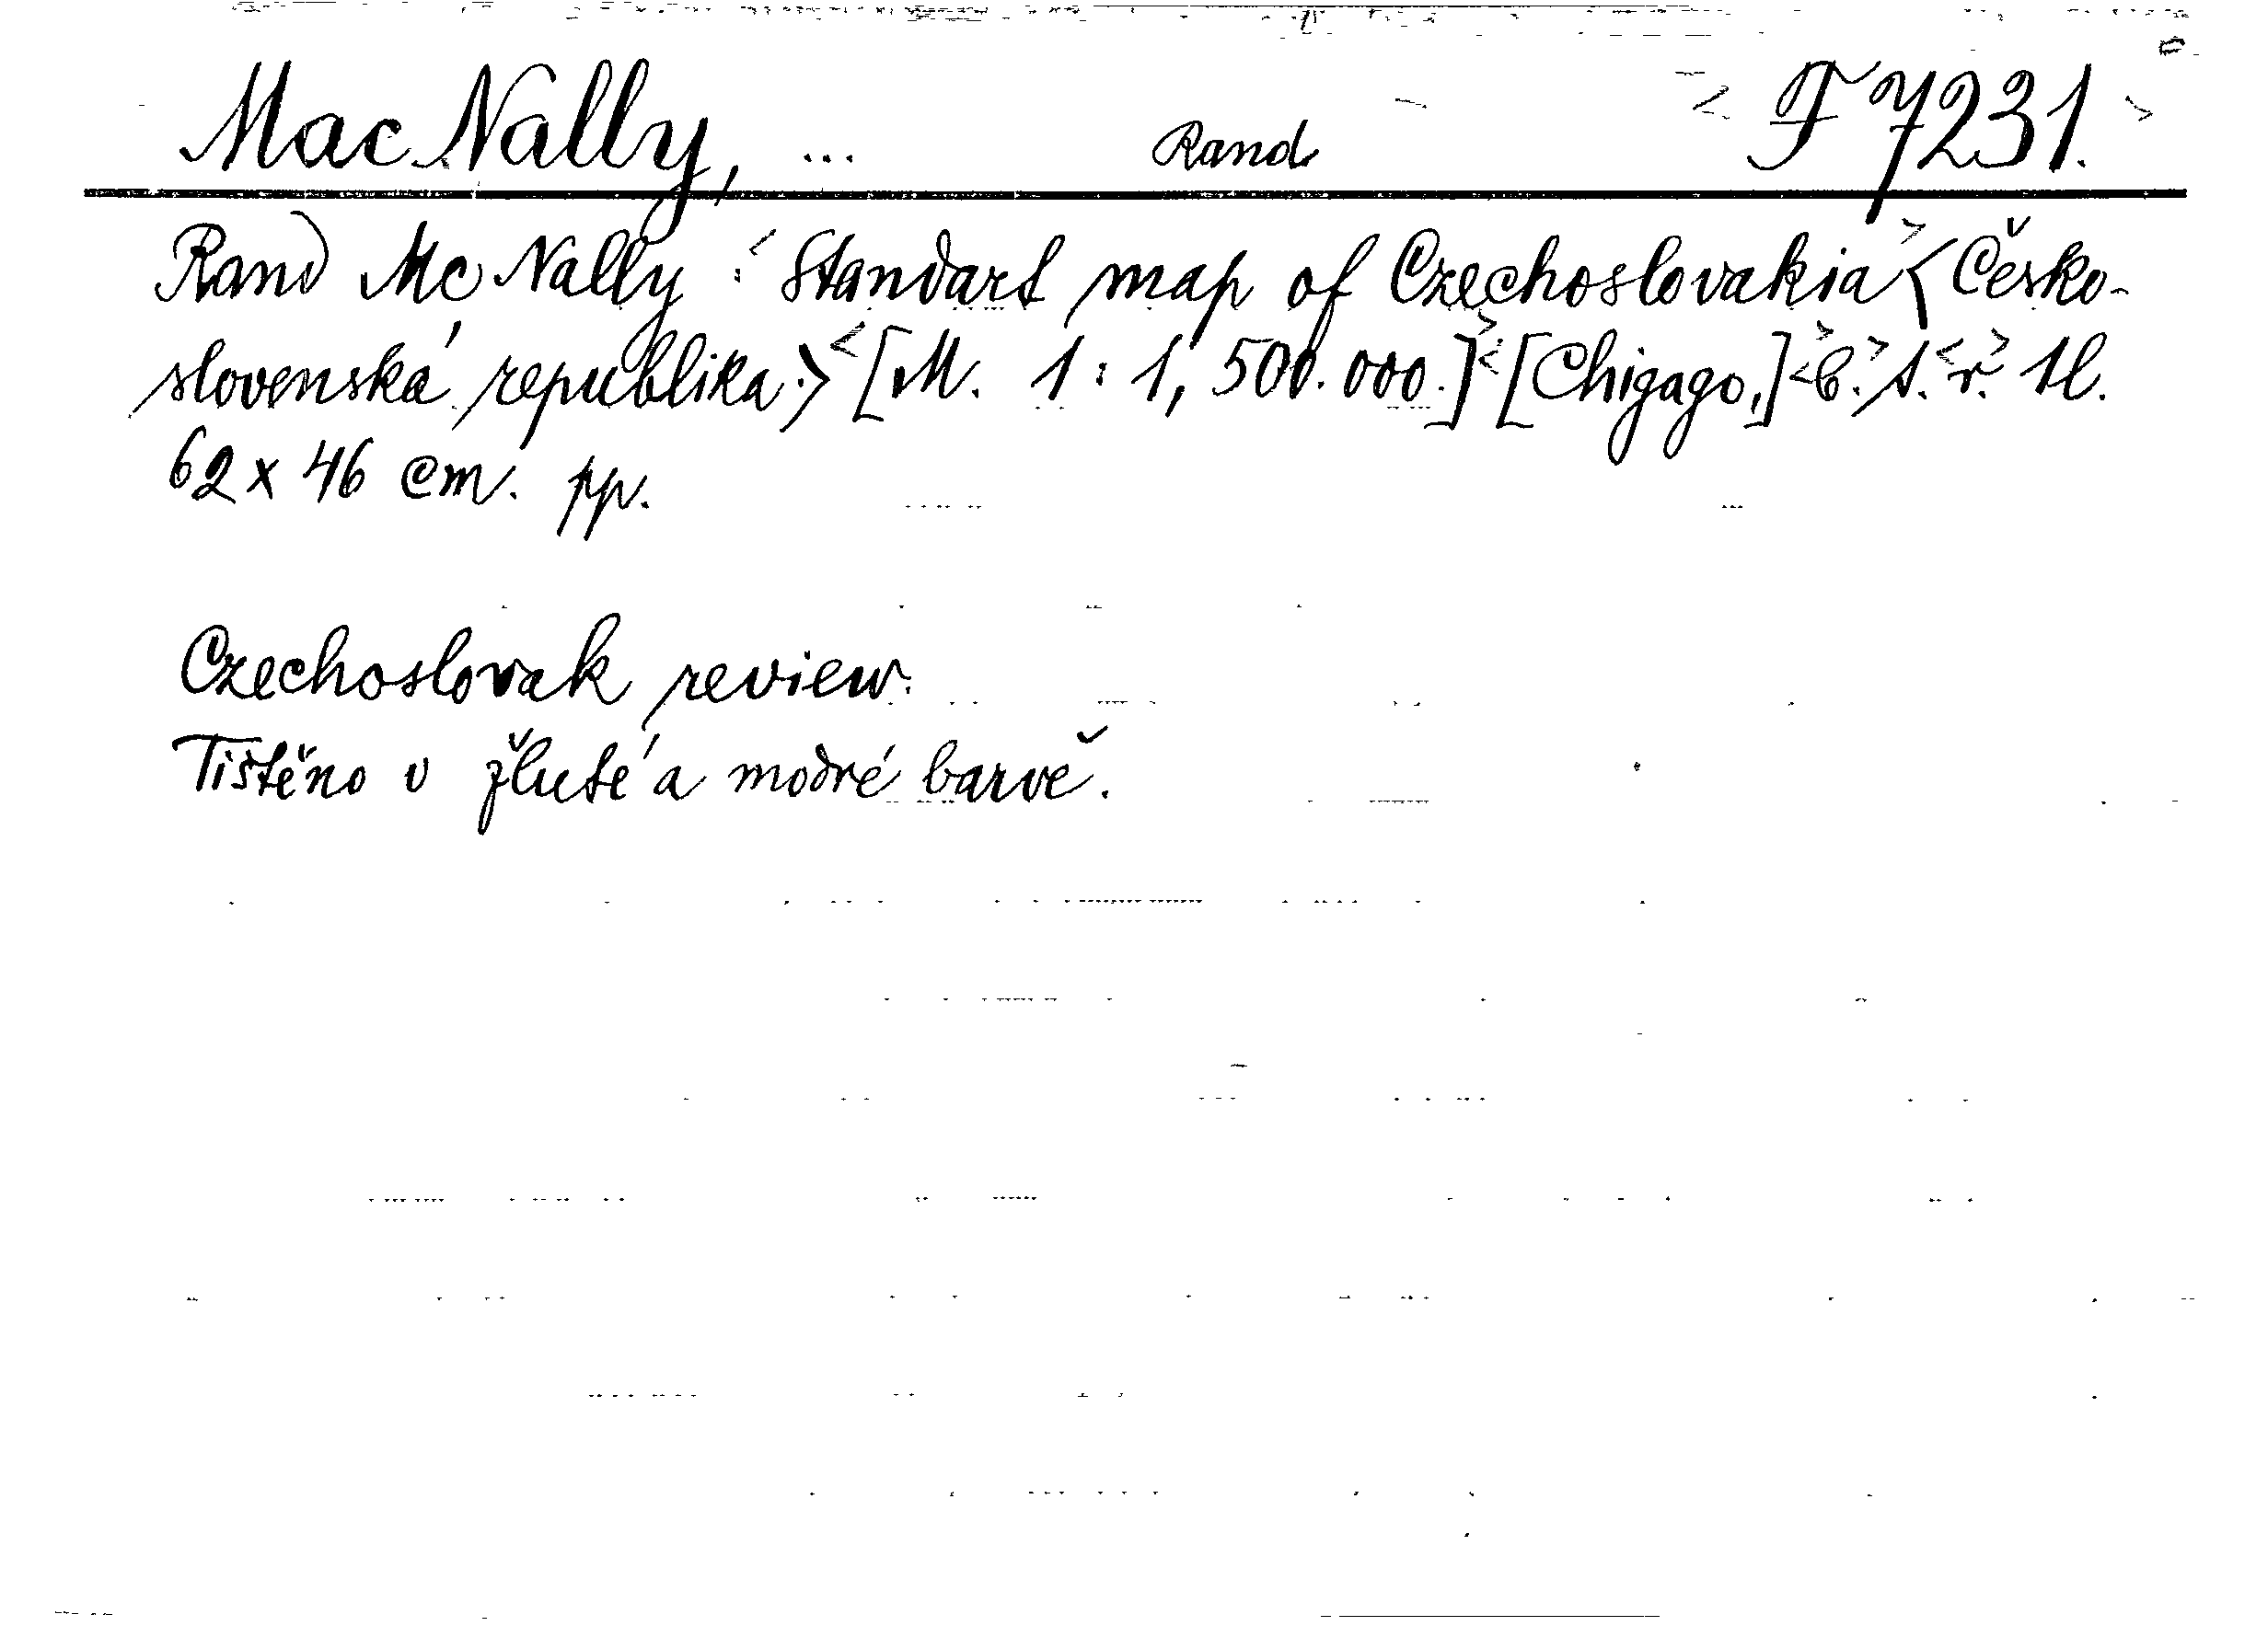 Mac Nally, ... Rand < F 7231. >
Rand Mc Nally : < Standart map of Czechoslovakia > < Česko-
slovenská republika.> < [M. 1 : 1,500.000.] > < [Chigago,] > < b. > t. < r. > 1l.
62 x 46 cm. pp.
Czechoslovak review.
Tištěno v žluté a modré barvě.